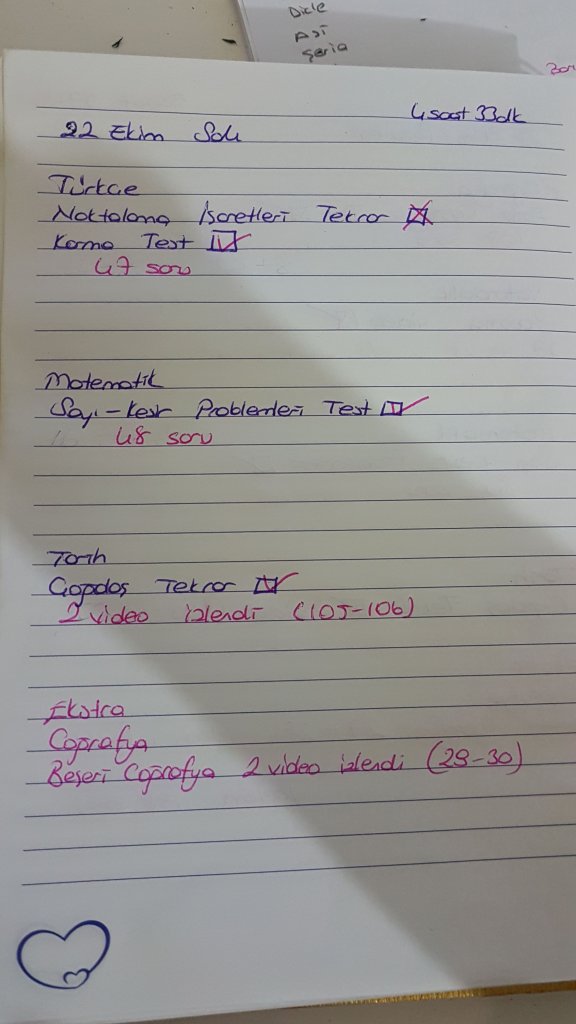 Dicle
Asi
Seria
4 saat 33dk
22 Ekim Salı
Türkçe
Noktalama İşaretleri Tekrar
Karma Test
47 soru
Matematik
Sayı-Kesir Problemleri Test
48 soru
Tarih
Çağdaş Tekrar
2 video izlendi (105-106)
Ekstra
Coğrafya
Beşeri Coğrafya 2 video izlendi (29-30)